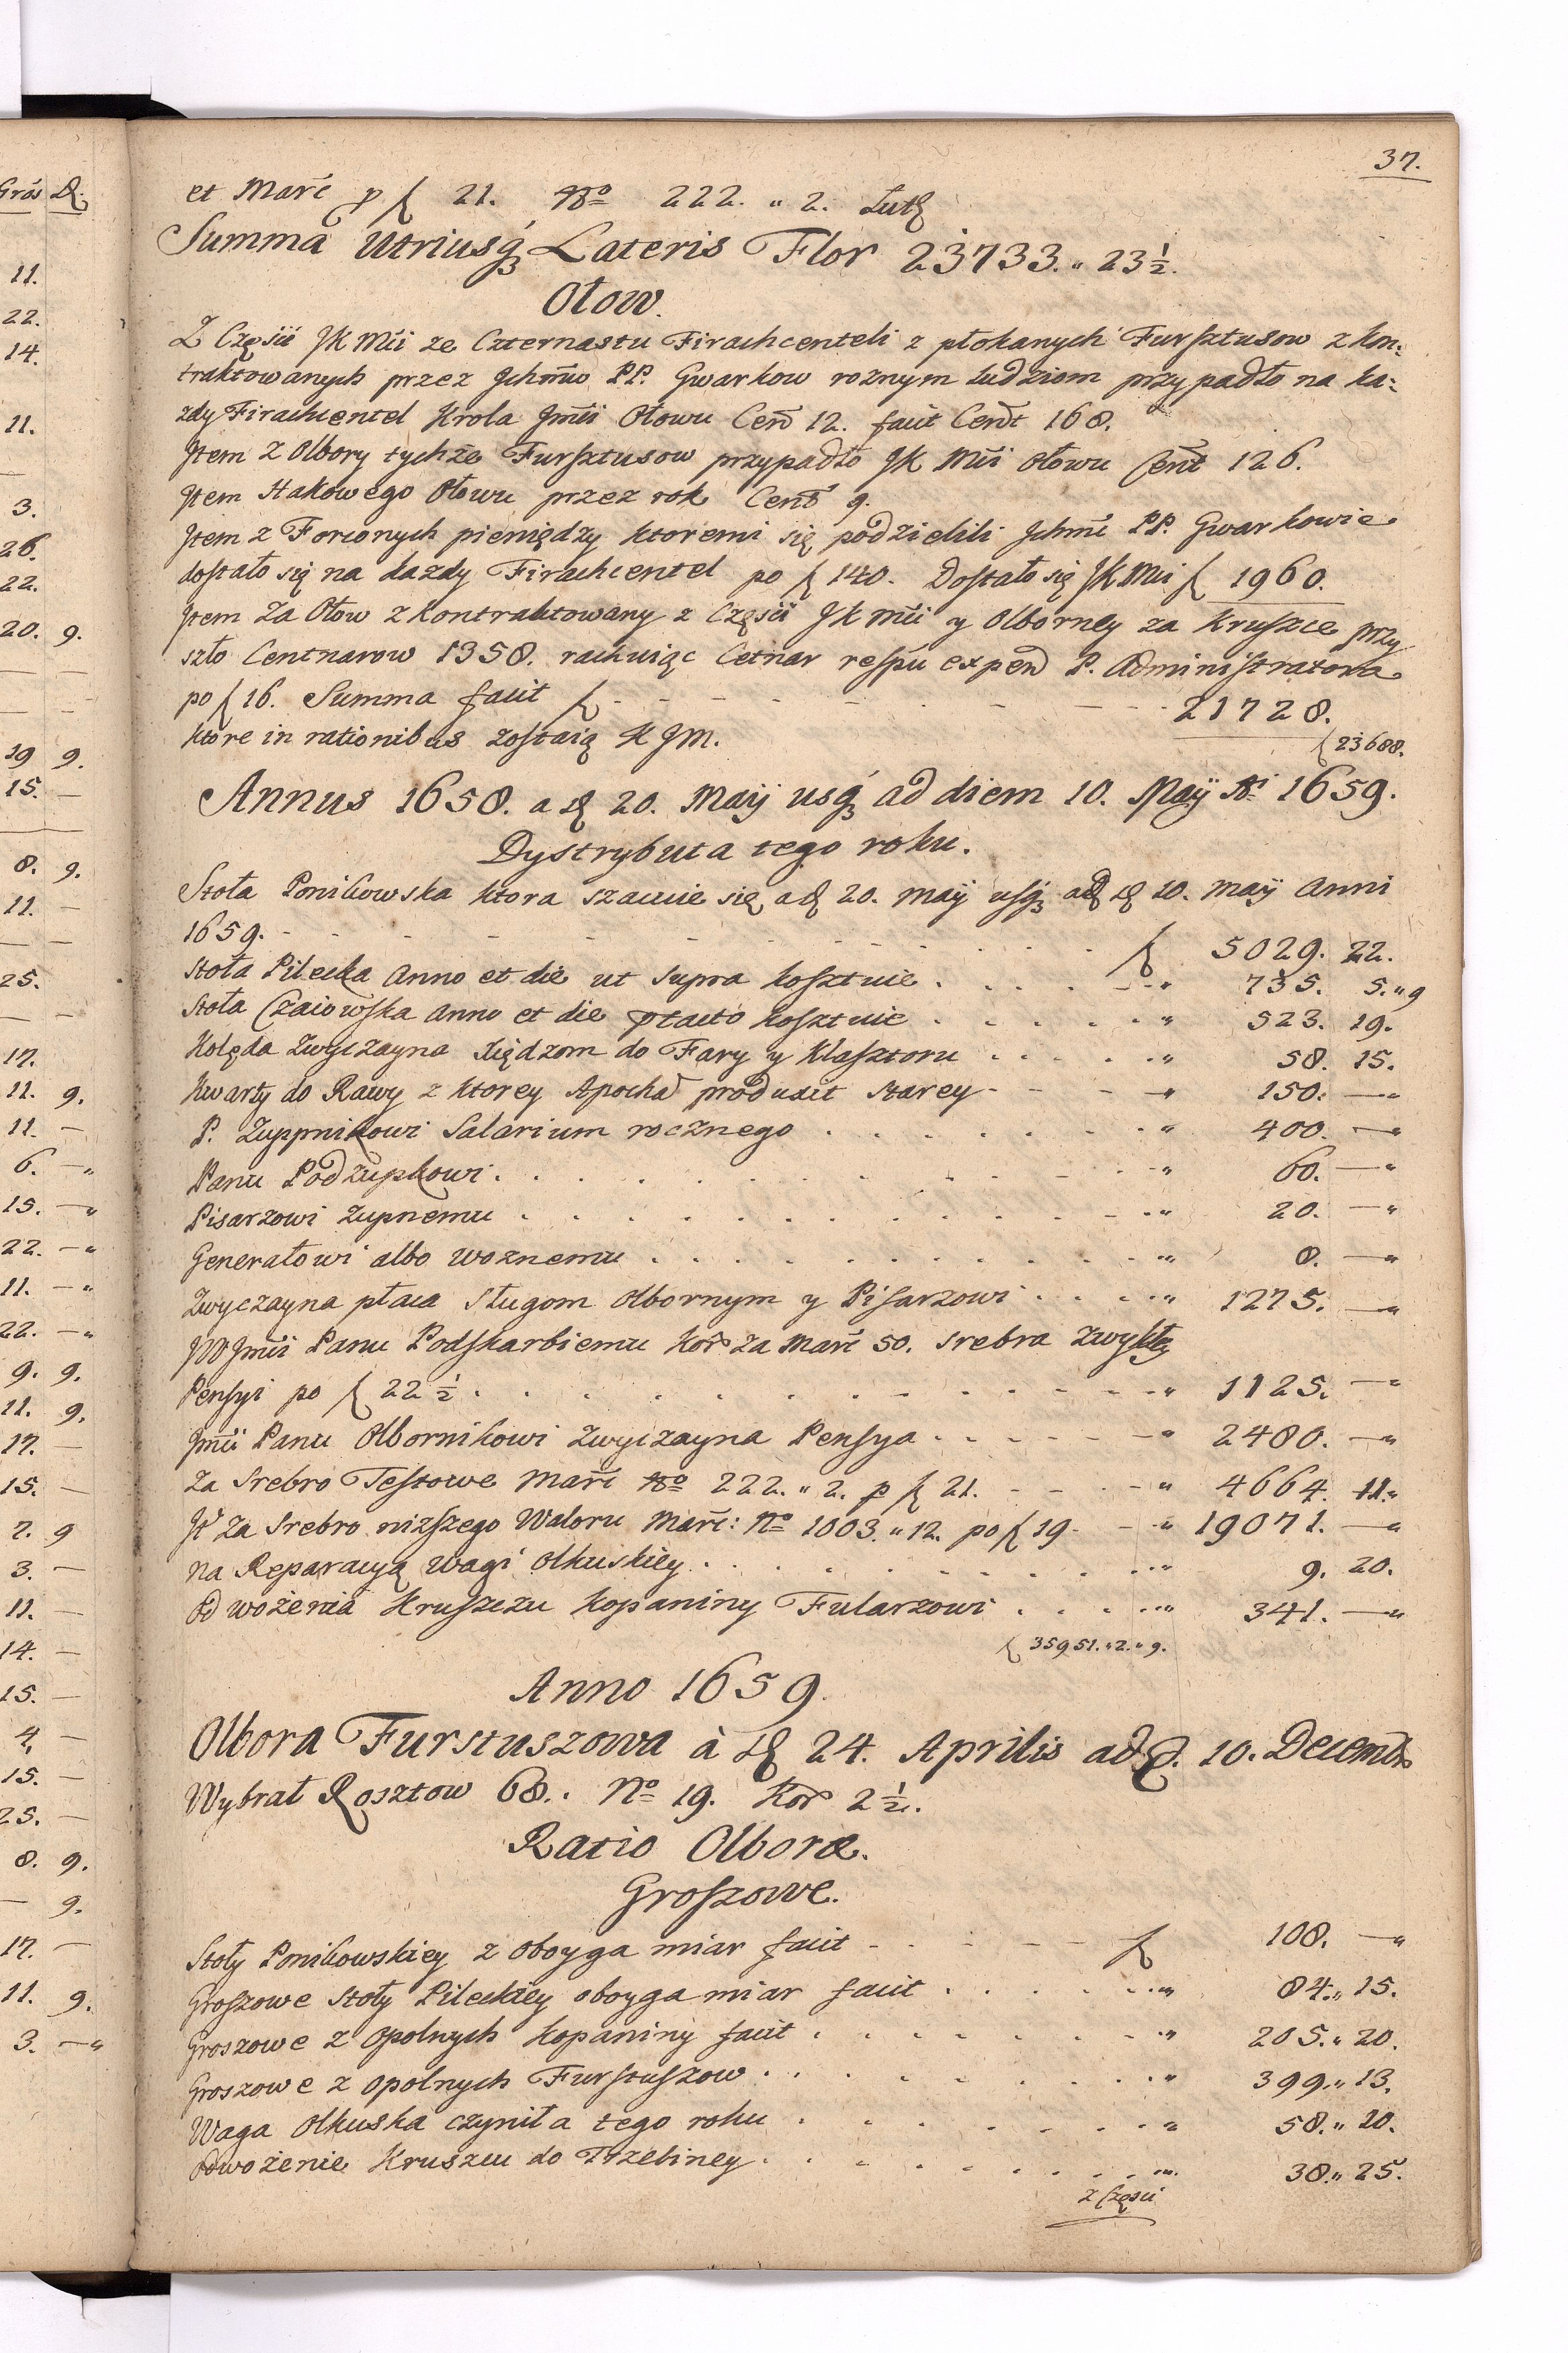 37.
et Marc p f 21. No 222. „ 2. Lut
Summa Utriusq Lateris Flor 23733. „ 23 1/2.
Ołow.
Z Częsci JK Mći ze Czternastu Firachcenteli z płokanych Fursztusow zkon:
traktowanych przez Jchmw PP. Gwarkow roznym ludziom przypadło na ka:
zdy Firachcentel Krola Jmći Ołowu Cen 12. facit Cent 168.
Jtem z Olbory tychże Fursztusow przypadło JK Mći ołowu Cent 126.
Jtem Hakowego Ołowu przez rok Cent 9.
Jtem z Forconych pieniędzy ktoremi się podzielili Jchmć PP. Gwarkowie
dostało się na kazdy Firachcentel po f 140. Dostało się JK Mći f 1960.
Jtem Za Ołow zkontraktowany z Częsci JK Mći y Olborney za Kruszce przy
szło Centnarow 1358. rachuiąc Cetnar respu expen P. Administratora
po f 16. Summa facit f - - - 21728.
ktore in rationibus zostaią K JM. f 23688.
Annus 1658. a d 20. Maij usq ad diem 10. Maij Ai 1659.
Dystrybuta tego roku.
Stoła Ponikowska ktora szacuie się a d 20. maij usq ad d 10. maij Anni
1659. - - - f 5029. 22.
Stoła Pilecka Anno et die ut supra kosztuie . . . „ 735. 5. „ 9
Stoła Czaiowska Anno et die ptacto kosztuie . . . „ 523. 19.
Kolęda zwyczayna Xiędzom do Fary y Klasztoru . . . „ 58. 15.
Kwarty do Rawy z ktorey Apocha produxit starey - - - „ 150. —„
P. Zuppnikowi Salarium rocznego . . . „ 400. —„
Panu Podzupkowi . . . „ 60. —„
Pisarzowi Zupnemu . . . „ 20. —„
Generałowi albo woznemu . . . „ 8. —„
Zwyczayna płaca Sługom Olbornym y Pisarzowi . . . „ 1275. —„
JW Jmći Panu Podskarbiemu Kor za Marc 50. srebra zwykłey
Pensyi po f 22 1/2 . . . „ 1125. —„
Jmći Panu Olbornikowi Zwyczayna Pensya . . . „ 2480. —„
Za Srebro Testowe Marc No 222. „ 2. p f 21. - - - „ 4664. 11.„
Jt Za Srebro nizszego Waloru Marc: No 1003. „ 12. po f 19 - - „ 19071. —„
na Reparacyą wagi Olkuskiey . . . „ 9. 20.
Od wożenia Kruszczu Kopaniny Fularzowi . . . „ 341. —„
f 35951. „ 2. „ 9.
Anno 1659.
Olbora Furstuszowa à d 24. Aprilis ad d. 10. Decemb
Wybrał Rosztow 68. . No 19. Kor 2 1/2.
Ratio Olboræ.
Groszowe.
Stoły Ponikowskiey z oboyga miar facit - - - f 108. —„
Groszowe Stoły Pileckiey oboyga miar facit . . . „ 84. „ 15.
Groszowe z opolnych kopaniny facit . . . „ 205. „ 20.
Groszowe z opolnych Furstuszow . . . „ 399. „ 13.
Waga Olkuska czyniła tego roku . . . „ 58. „ 20.
Odwożenie Kruszcu do Trzebiney . . . „ 38. „ 25.
z Częsci